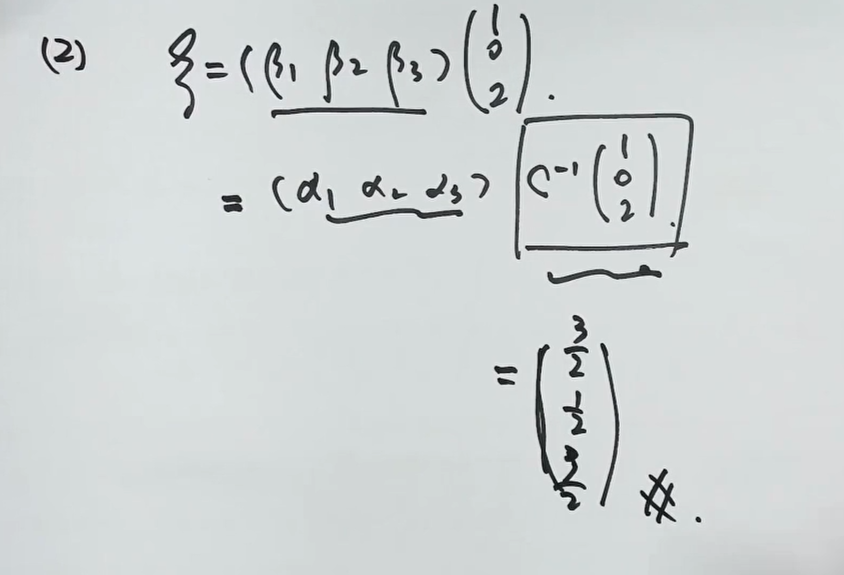 (2) ξ = (β₁ β₂ β₃) (1 0 2).
= (α₁ α₂ α₃) C⁻¹ (1 0 2).
= (3/2 1/2 3/2) #.